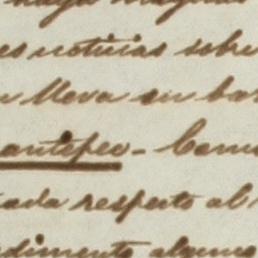 haya
es noticias sobre
lleva en
antepec- Como
ada respecto al
dimento alguno